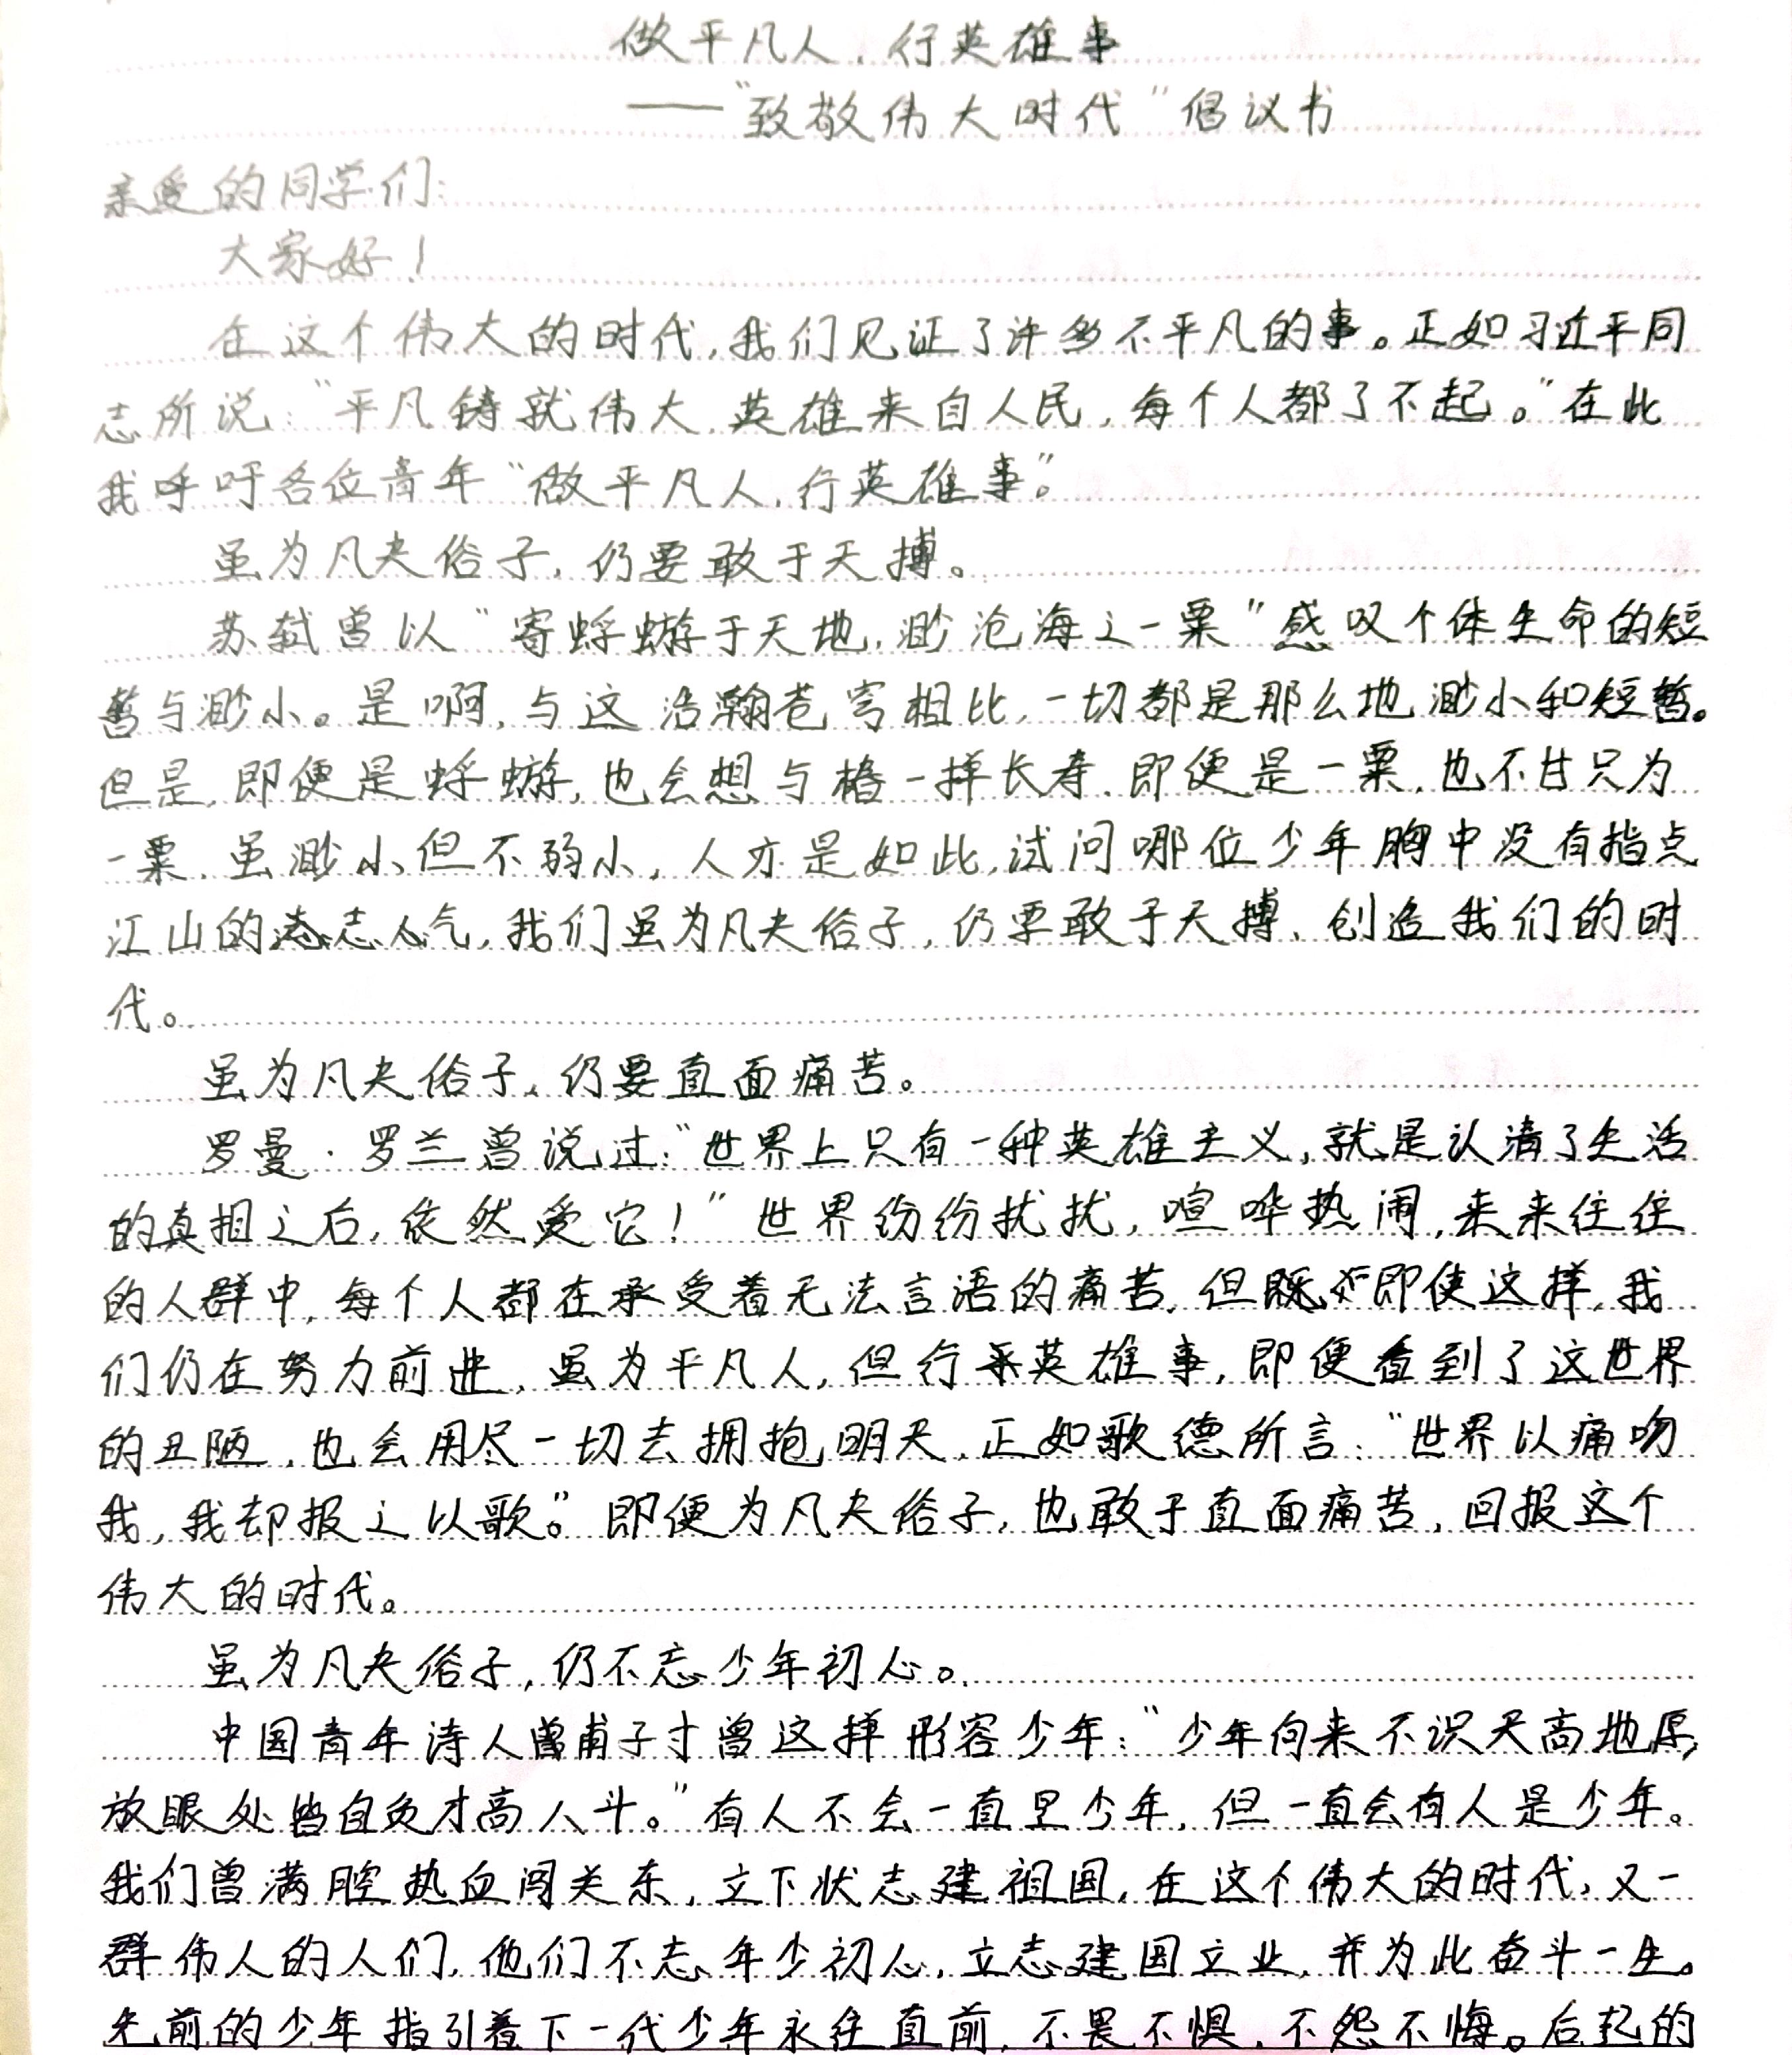 做平凡人,行英雄事
——“致敬伟大时代”倡议书
亲爱的同学们:
大家好!
在这个伟大的时代,我们见证了许多不平凡的事。正如习近平同
志所说:“平凡铸就伟大,英雄来自人民,每个人都了不起。”在此
我呼吁各位青年“做平凡人,行英雄事”。
虽为凡夫俗子,仍要敢于天搏。
苏轼曾以“寄蜉蝣于天地,渺沧海之一粟”感叹个体生命的短
暂与渺小。是啊,与这浩瀚苍穹相比,一切都是那么地渺小和短暂。
但是,即便是蜉蝣,也会想与椿一样长寿,即便是一粟,也不甘只为
一粟,虽渺小但不弱小,人亦是如此,试问哪位少年胸中没有指点
江山的志气,我们虽为凡夫俗子,仍要敢于天搏,创造我们的时
代。
虽为凡夫俗子,仍要直面痛苦。
罗曼·罗兰曾说过:“世界上只有一种英雄主义,就是认清了生活
的真相之后,依然爱它!”世界纷纷扰扰,喧哗热闹,来来往往
的人群中,每个人都在承受着无法言语的痛苦,但即使这样,我
们仍在努力前进,虽为平凡人,但行英雄事,即便看到了这世界
的丑陋,也会用尽一切去拥抱明天,正如歌德所言:“世界以痛吻
我,我却报之以歌。”即便为凡夫俗子,也敢于直面痛苦,回报这个
伟大的时代。
虽为凡夫俗子,仍不忘少年初心。
中国青年诗人曾甫子寸曾这样形容少年:“少年向来不识天高地厚,
放眼处皆自负才高八斗。”有人不会一直是少年,但一直会有人是少年。
我们曾满腔热血闯关东,立下状志建祖国,在这个伟大的时代,又一
群伟人的人们,他们不忘年少初心,立志建国立业,并为此奋斗一生。
先前的少年指引着下一代少年永往直前,不畏不惧,不怨不悔。后起的